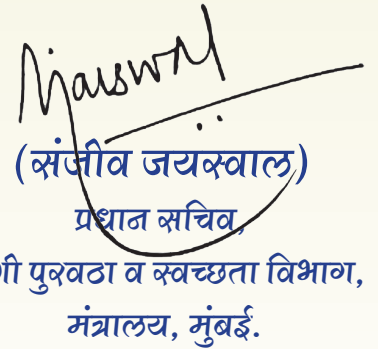 (संजीव जयस्वाल)
प्रधान सचिव,
पुरवठा व स्वच्छता विभाग,
मंत्रालय, मुंबई.